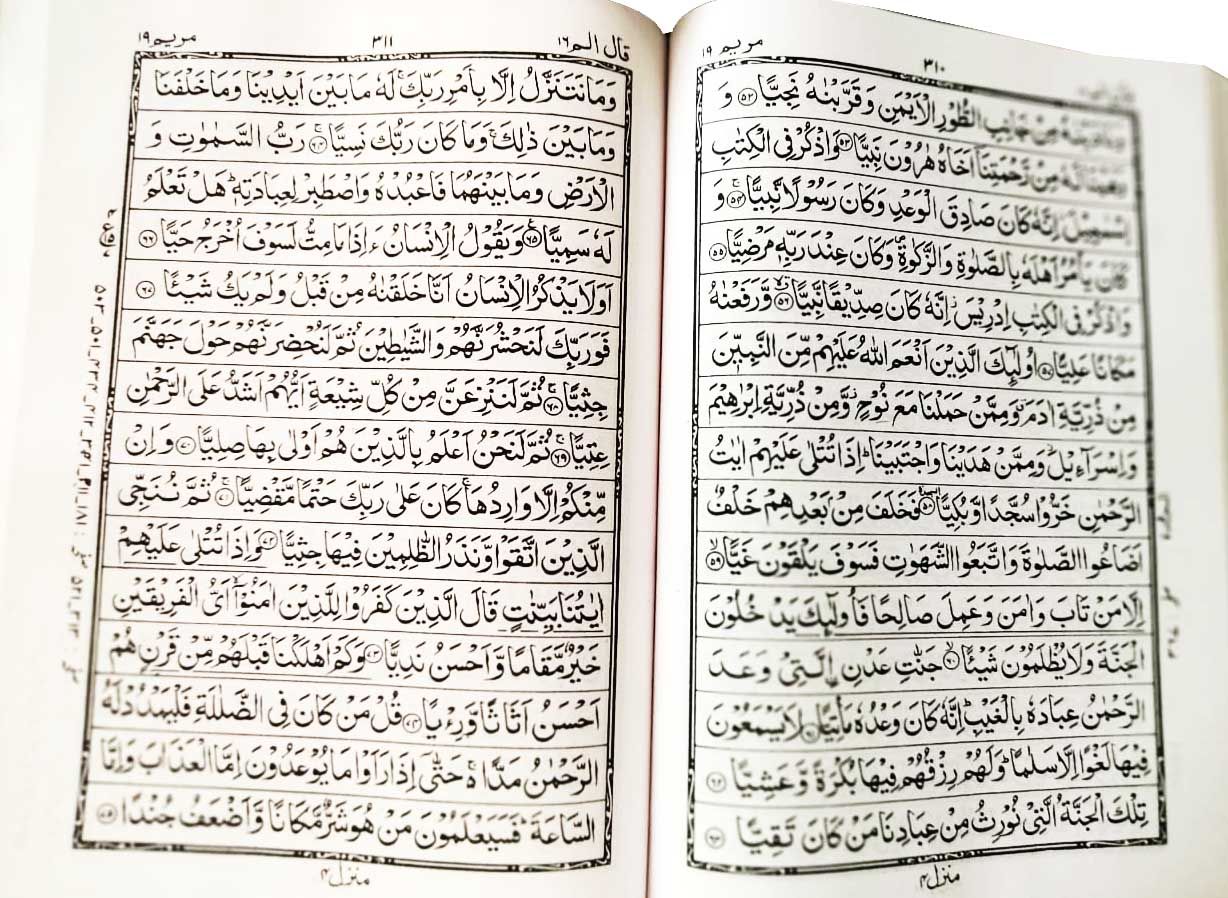 مريم ١٩
٣١٠
وَنَادَيْنٰهُ مِنْ جَانِبِ الطُّوْرِ الْاَيْمَنِ وَقَرَّبْنٰهُ نَجِيًّا ﴿٥٢﴾ وَ
وَهَبْنَا لَهٗ مِنْ رَّحْمَتِنَآ اَخَاهُ هٰرُوْنَ نَبِيًّا ﴿٥٣﴾ وَاذْكُرْ فِى الْكِتٰبِ
اِسْمٰعِيْلَ اِنَّهٗ كَانَ صَادِقَ الْوَعْدِ وَكَانَ رَسُوْلًا نَّبِيًّا ﴿٥٤﴾ وَ
كَانَ يَاْمُرُ اَهْلَهٗ بِالصَّلٰوةِ وَالزَّكٰوةِ وَكَانَ عِنْدَ رَبِّهٖ مَرْضِيًّا ﴿٥٥﴾
وَاذْكُرْ فِى الْكِتٰبِ اِدْرِيْسَ اِنَّهٗ كَانَ صِدِّيْقًا نَّبِيًّا ﴿٥٦﴾ وَّرَفَعْنٰهُ
مَكَانًا عَلِيًّا ﴿٥٧﴾ اُولٰٓئِكَ الَّذِيْنَ اَنْعَمَ اللّٰهُ عَلَيْهِمْ مِّنَ النَّبِيّٖنَ
مِنْ ذُرِّيَّةِ اٰدَمَ وَمِمَّنْ حَمَلْنَا مَعَ نُوْحٍ وَّمِنْ ذُرِّيَّةِ اِبْرٰهِيْمَ
وَاِسْرَآءِيْلَ وَمِمَّنْ هَدَيْنَا وَاجْتَبَيْنَا اِذَا تُتْلٰى عَلَيْهِمْ اٰيٰتُ
الرَّحْمٰنِ خَرُّوْا سُجَّدًا وَّبُكِيًّا ﴿٥٨﴾ فَخَلَفَ مِنْ بَعْدِهِمْ خَلْفٌ
اَضَاعُوا الصَّلٰوةَ وَاتَّبَعُوا الشَّهَوٰتِ فَسَوْفَ يَلْقَوْنَ غَيًّا ﴿٥٩﴾
اِلَّا مَنْ تَابَ وَاٰمَنَ وَعَمِلَ صَالِحًا فَاُولٰٓئِكَ يَدْخُلُوْنَ
الْجَنَّةَ وَلَا يُظْلَمُوْنَ شَيْئًا ﴿٦٠﴾ جَنّٰتِ عَدْنِ اِلَّتِيْ وَعَدَ
الرَّحْمٰنُ عِبَادَهٗ بِالْغَيْبِ اِنَّهٗ كَانَ وَعْدُهٗ مَاْتِيًّا ﴿٦١﴾ لَا يَسْمَعُوْنَ
فِيْهَا لَغْوًا اِلَّا سَلٰمًا وَلَهُمْ رِزْقُهُمْ فِيْهَا بُكْرَةً وَّعَشِيًّا ﴿٦٢﴾
تِلْكَ الْجَنَّةُ الَّتِيْ نُوْرِثُ مِنْ عِبَادِنَا مَنْ كَانَ تَقِيًّا ﴿٦٣﴾
منزل ٤
قال الم ١٦
٣١١
مريم ١٩
وَمَا نَتَنَزَّلُ اِلَّا بِاَمْرِ رَبِّكَ لَهٗ مَا بَيْنَ اَيْدِيْنَا وَمَا خَلْفَنَا
وَمَا بَيْنَ ذٰلِكَ وَمَا كَانَ رَبُّكَ نَسِيًّا ﴿٦٤﴾ رَبُّ السَّمٰوٰتِ وَ
الْاَرْضِ وَمَا بَيْنَهُمَا فَاعْبُدْهُ وَاصْطَبِرْ لِعِبَادَتِهٖ هَلْ تَعْلَمُ
لَهٗ سَمِيًّا ﴿٦٥﴾ وَيَقُوْلُ الْاِنْسَانُ ءَاِذَا مَا مِتُّ لَسَوْفَ اُخْرَجُ حَيًّا ﴿٦٦﴾
اَوَلَا يَذْكُرُ الْاِنْسَانُ اَنَّا خَلَقْنٰهُ مِنْ قَبْلُ وَلَمْ يَكُ شَيْئًا ﴿٦٧﴾
فَوَرَبِّكَ لَنَحْشُرَنَّهُمْ وَالشَّيٰطِيْنَ ثُمَّ لَنُحْضِرَنَّهُمْ حَوْلَ جَهَنَّمَ
جِثِيًّا ﴿٦٨﴾ ثُمَّ لَنَنْزِعَنَّ مِنْ كُلِّ شِيْعَةٍ اَيُّهُمْ اَشَدُّ عَلَى الرَّحْمٰنِ
عِتِيًّا ﴿٦٩﴾ ثُمَّ لَنَحْنُ اَعْلَمُ بِالَّذِيْنَ هُمْ اَوْلٰى بِهَا صِلِيًّا ﴿٧٠﴾ وَاِنْ
مِّنْكُمْ اِلَّا وَارِدُهَا كَانَ عَلٰى رَبِّكَ حَتْمًا مَّقْضِيًّا ﴿٧١﴾ ثُمَّ نُنَجِّى
الَّذِيْنَ اتَّقَوْا وَّنَذَرُ الظّٰلِمِيْنَ فِيْهَا جِثِيًّا ﴿٧٢﴾ وَاِذَا تُتْلٰى عَلَيْهِمْ
اٰيٰتُنَا بَيِّنٰتٍ قَالَ الَّذِيْنَ كَفَرُوْا لِلَّذِيْنَ اٰمَنُوْٓا اَىُّ الْفَرِيْقَيْنِ
خَيْرٌ مَّقَامًا وَّاَحْسَنُ نَدِيًّا ﴿٧٣﴾ وَكَمْ اَهْلَكْنَا قَبْلَهُمْ مِّنْ قَرْنٍ هُمْ
اَحْسَنُ اَثَاثًا وَّرِءْيًا ﴿٧٤﴾ قُلْ مَنْ كَانَ فِى الضَّلٰلَةِ فَلْيَمْدُدْ لَهُ
الرَّحْمٰنُ مَدًّا حَتّٰٓى اِذَا رَاَوْا مَا يُوْعَدُوْنَ اِمَّا الْعَذَابَ وَاِمَّا
السَّاعَةَ فَسَيَعْلَمُوْنَ مَنْ هُوَ شَرٌّ مَّكَانًا وَّاَضْعَفُ جُنْدًا ﴿٧٥﴾
منزل ٤